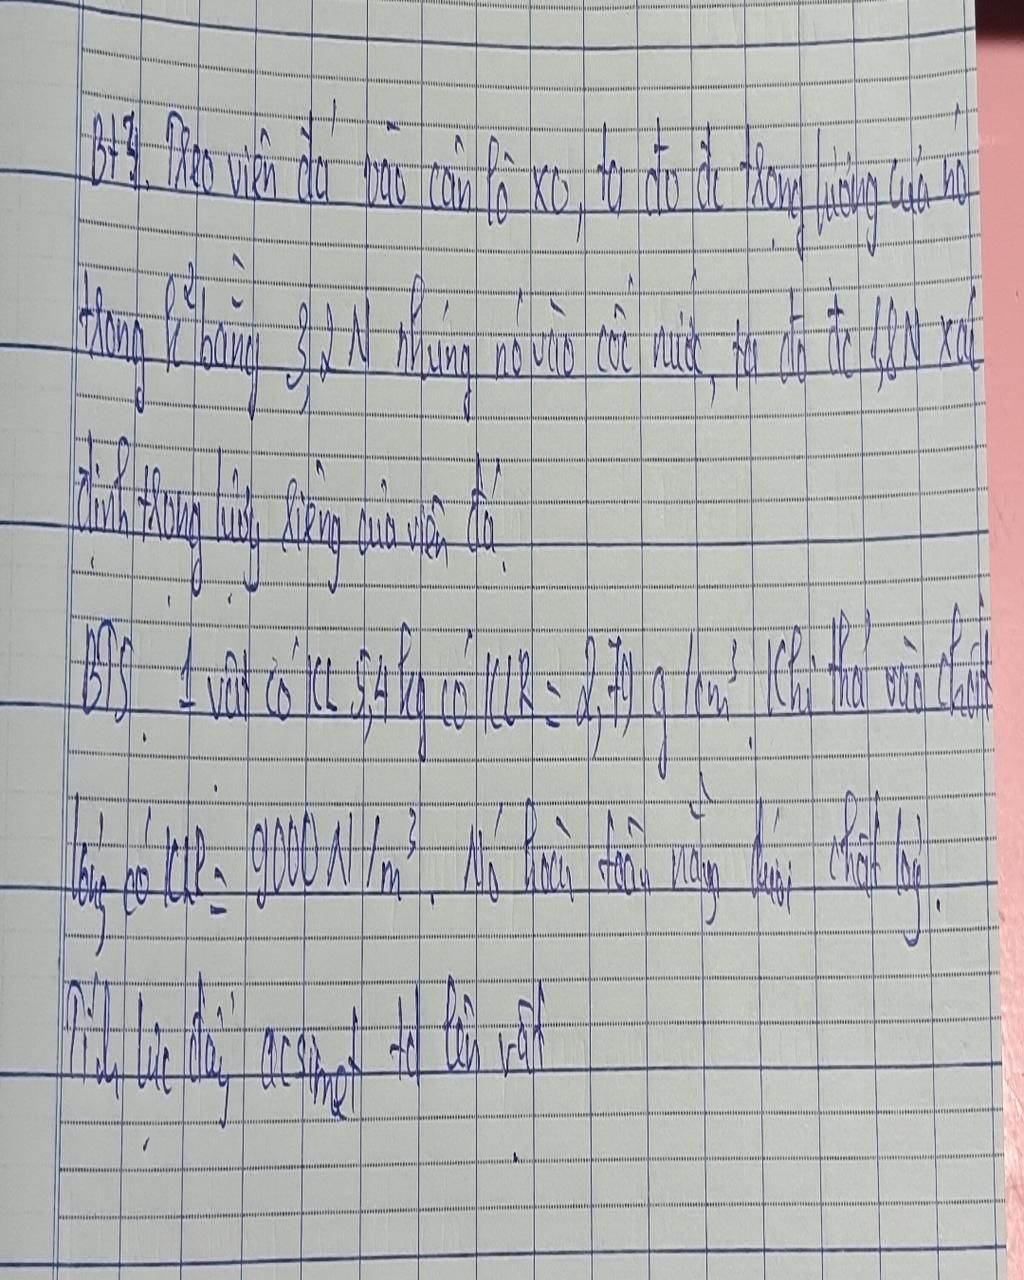 BT3. Treo viên đá vào cân lò xo, ta đo đc trọng lượng của nó
trong k² bằng 3,2 N nhúng nó vào cốc nước, ta đo đc 1,8N xác
định trọng lượng riêng của viên đá
BT5. 1 vật có KL 5,4 kg có KLR = 2,79 g/cm³ Khi thả vào chất
lỏng có KLR = 9000 N/m³. Nó hoàn toàn nằm dưới chất lỏng.
Tính lực đẩy acsimet td lên vật